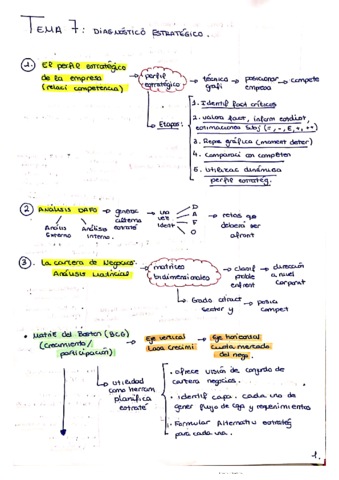 TEMA 7: DIAGNÓSTICO ESTRATÉGICO.
1. El perfil estratégico de la empresa (relaci competencia)
perfil estratégico
técnica grafi
posicionar empresa
compete
Etapas:
1. Identif fact críticos
2. valora fact, inform estadist, estimaciones subj (=, -, E, +, ++)
3. Repre gráfica (moment deter)
4. Comparaci con competen
5. Utilizac dinámica perfil estratég.
2 ANÁLISIS DAFO
generac alterna estraté
una vez ident
D
A
F
O
retos que deberá ser afront
Análisis Externo
Análisis Interno.
3. La cartera de Negocios: Análisis Matricial
matrices bidimensionales
clasif proble enfrent
dirección a nivel corporat
Grado atract sector y
posici compet
• Matriz del Boston (BCG) (crecimiento/ participación)
Eje vertical tasa crecimi
Eje horizontal cuota mercado del nego.
utilidad como herram planifica estraté
• ofrece visión de conjunto de cartera negocios.
• identif capa. cada uno de gener flujo de caja y requerimientos
• Formular Alternativ estratég para cada una.
1.